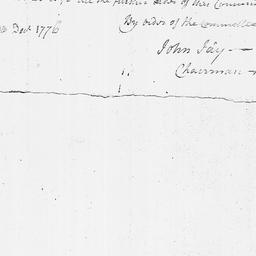 the further order of this Commi
Decr 1776
By order of the Committee
John Jay —
Chairman